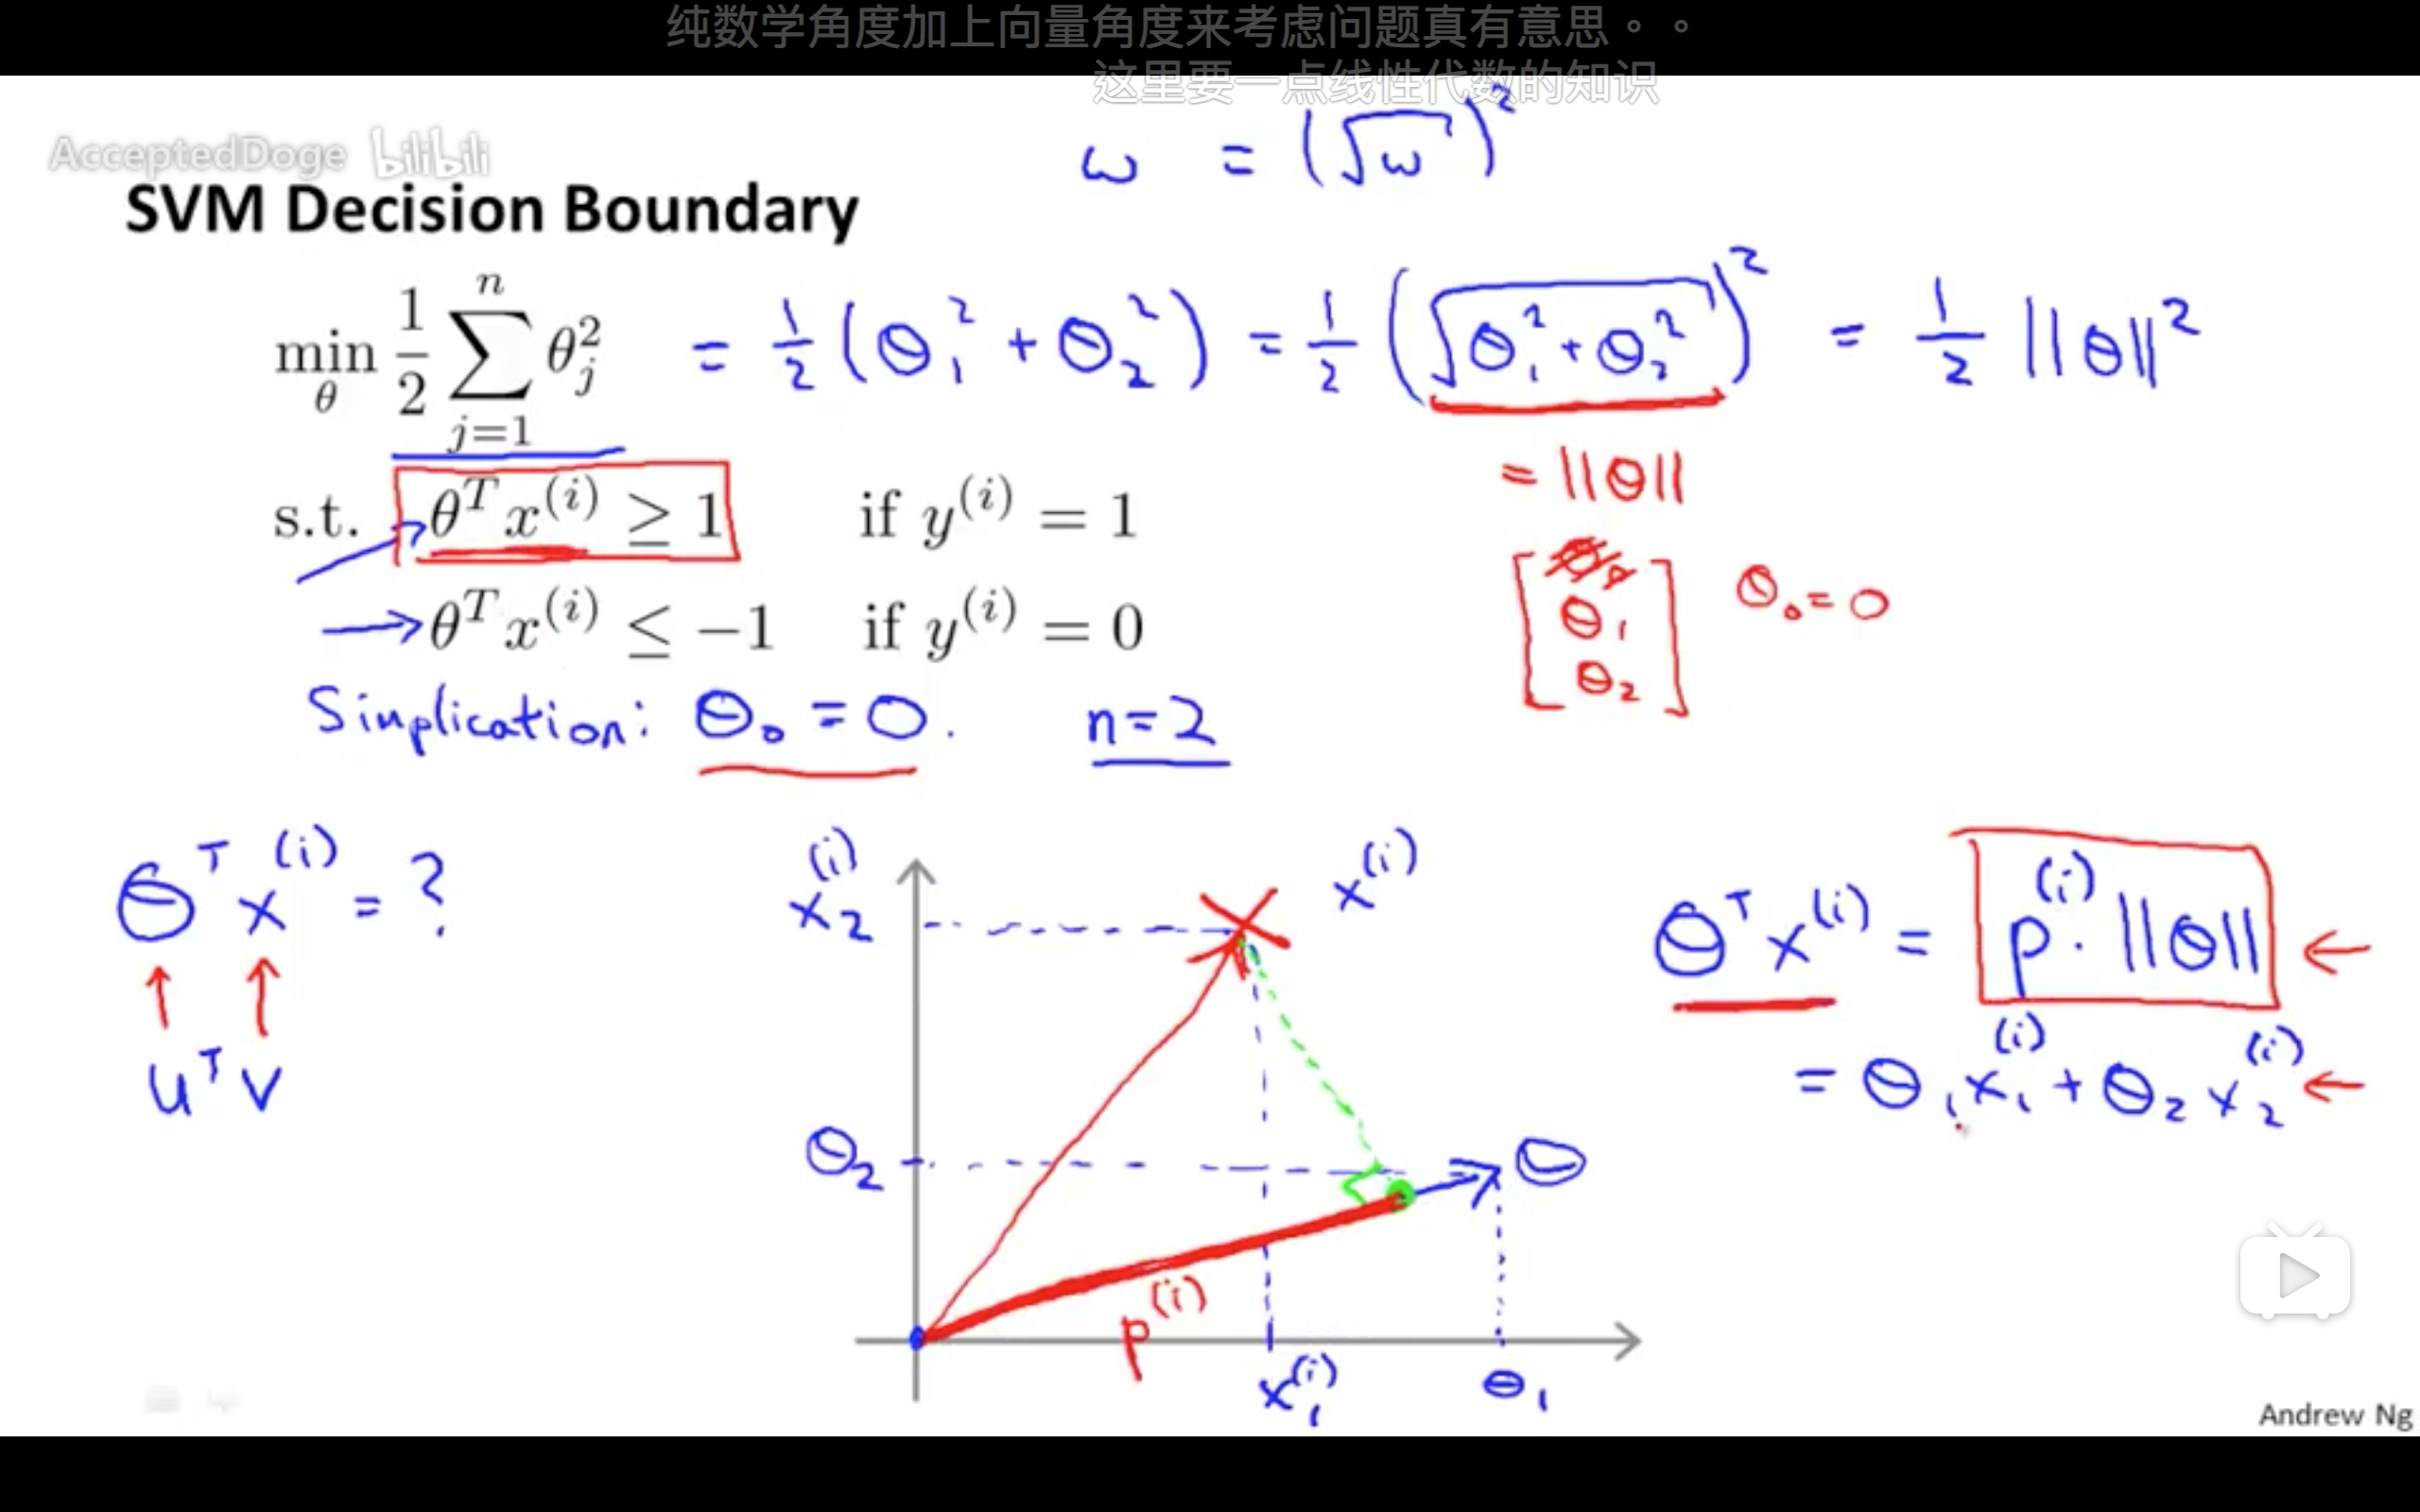 纯数学角度加上向量角度来考虑问题真有意思。。
这里要一点线性代数的知识
AcceptedDoge bilibili
ω = (√ω)²
SVM Decision Boundary
min_θ 1/2 ∑_{j=1}^{n} θ_j² = 1/2 (θ₁² + θ₂²) = 1/2 (√(θ₁² + θ₂²))² = 1/2 ||θ||²
= ||θ||
s.t. θᵀx⁽ⁱ⁾ ≥ 1 if y⁽ⁱ⁾ = 1
θᵀx⁽ⁱ⁾ ≤ −1 if y⁽ⁱ⁾ = 0
[θ₀ θ₁ θ₂] θ₀ = 0
Simplication: θ₀ = 0. n=2
θᵀx⁽ⁱ⁾ = ?
uᵀv
x₂⁽ⁱ⁾
x⁽ⁱ⁾
θ₂
θ
p⁽ⁱ⁾
x₁⁽ⁱ⁾
θ₁
θᵀx⁽ⁱ⁾ = p⁽ⁱ⁾ · ||θ|| ←
= θ₁x₁⁽ⁱ⁾ + θ₂x₂⁽ⁱ⁾ ←
Andrew Ng